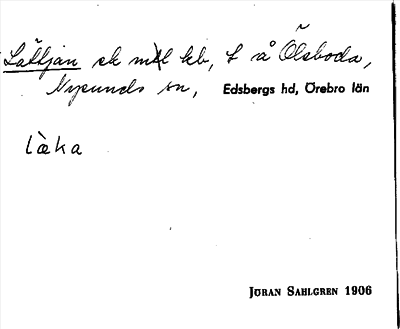 Lältjan sk m kb, t å Ölsboda,
Nysunds sn, Edsbergs hd, Örebro län
làka
JÖRAN SAHLGREN 1906